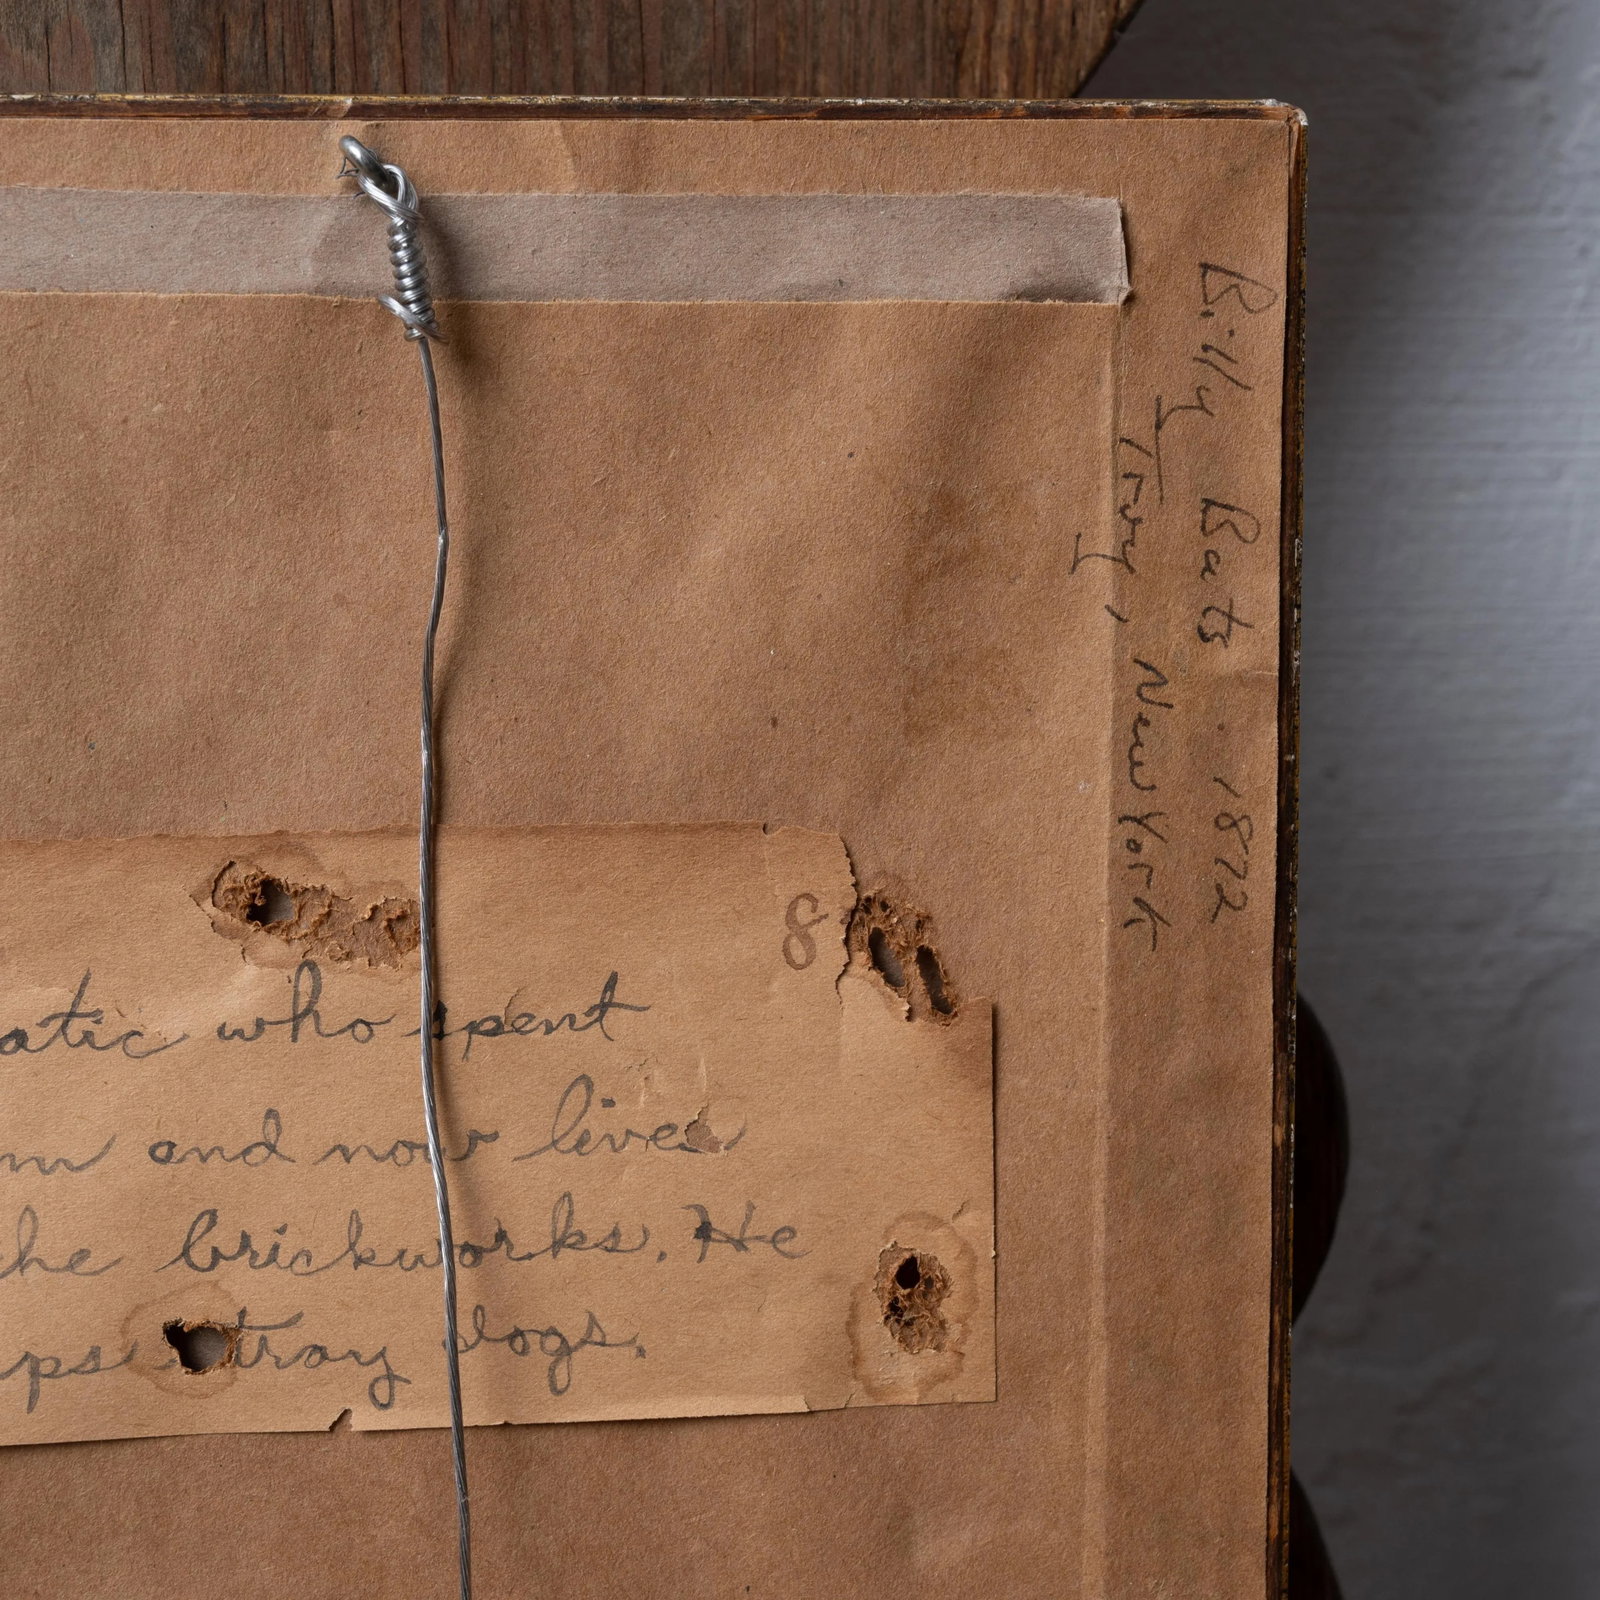 Billy Bats . 1872
Troy, New York
8
atic who spent
m and now lives
he brickworks. He
ps stray dogs.